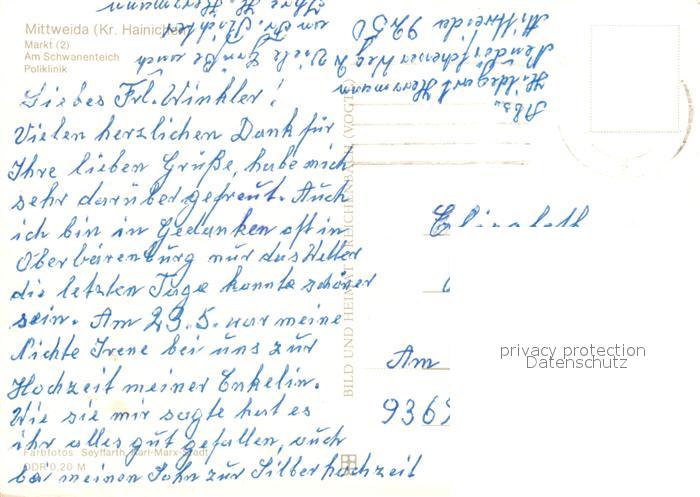 Mittweida (Kr. Hainichen)
Markt (2)
Am Schwanenteich
Poliklinik
Liebes Frl. Winkler!
Vielen herzlichen Dank für
Ihre lieben Grüße, habe mich
sehr darüber gefreut. Auch
ich bin in Gedanken oft in
Oberbärenburg nur das Wetter
die letzten Tage konnte schöner
sein. Am 23.5. war meine
Nichte Irene bei uns zur
Hochzeit meiner Enkelin.
Wie sie mir sagte hat es
ihr alles gut gefallen, auch
bei meinen Sohn zur Silberhochzeit
Viele Grüße auch
von Fr.
Ihre H. Herrmann
Abs.
Hildegard Herrmann
Mittweida 9250
Elisabeth
Am
936
BILD UND HEIMAT REICHENBACH (VOGTL)
Farbfotos: Seyffarth, Karl-Marx-Stadt
DDR 0,20 M
privacy protection
Datenschutz